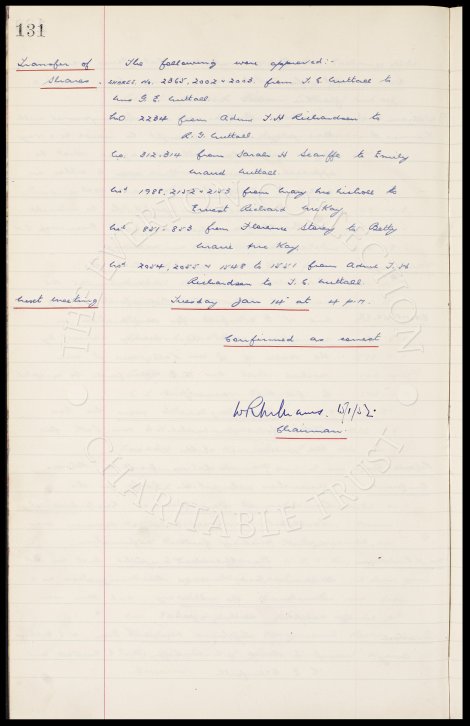 131
Transfer of The following were approved:-
Shares. SHARES. No. 2365, 2002 & 2003 from T. E. Nuttall to
Mrs G. E. Nuttall
No 2234 from Admr T. H Richardson to
R. G. Nuttall
No. 312-314 from Sarah H Scauffe to Emily
Maud Nuttall
Nos 1988, 2152 & 2153 from Mary McNicholl to
Ernest Richard McKay
Nos 851-853 from Florence to Betty
Marie McKay
Nos 2054, 2055 & 1548 to 1551 from Admr T. H
Richardson to T. E. Nuttall
Next meeting Tuesday Jan 14 at 4 p.m.
Confirmed as correct
Chairman.
THE HERITAGE COLLECTION
CHARITABLE TRUST